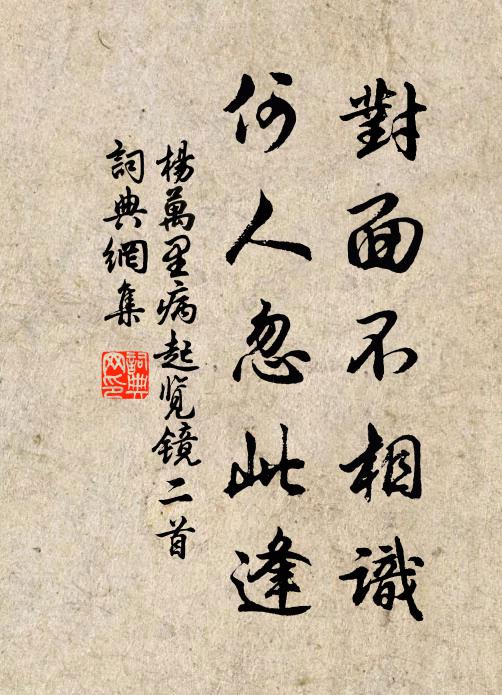 對面不相識
何人忽此逢
楊萬里病起览鏡二首
詞典網集
詞典
网印